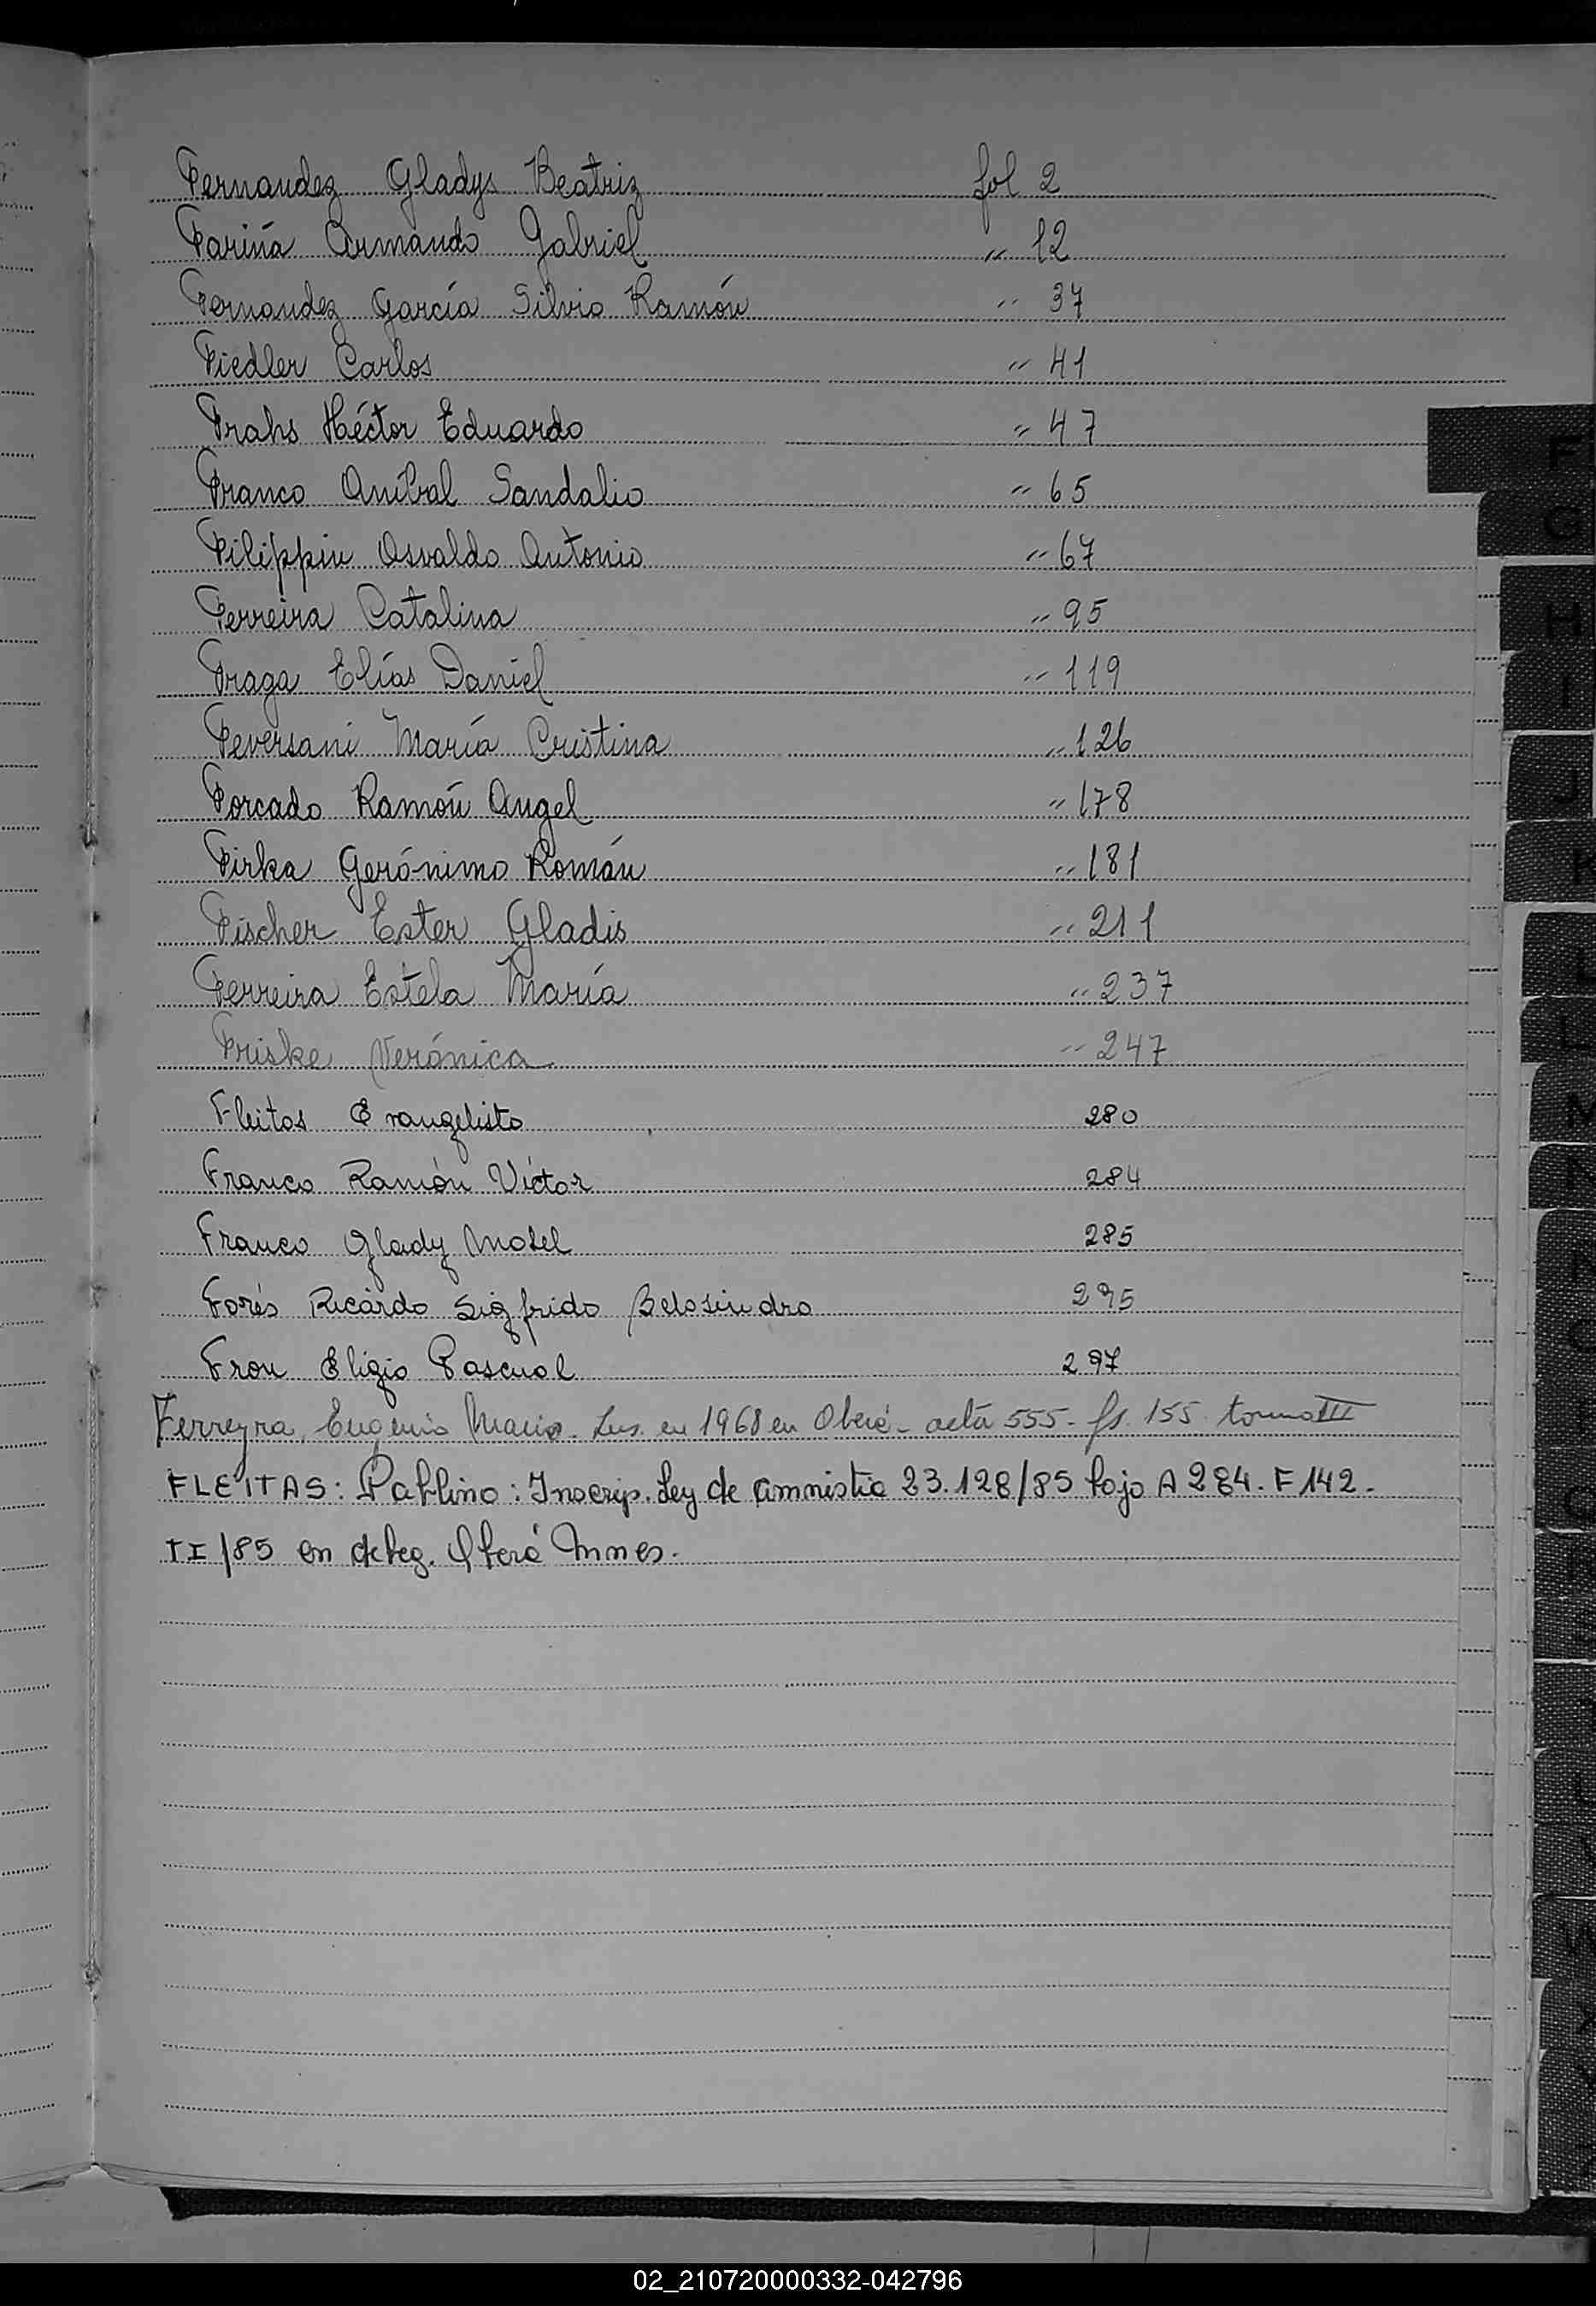 Fernandez Gladys Beatriz fol 2
Fariña Armando Gabriel " 12
Fernandez García Silvio Ramón " 37
Fiedler Carlos " 41
Frahs Héctor Eduardo " 47
Franco Aníbal Sandalio " 65
Filippin Osvaldo Antonio " 67
Ferreira Catalina " 95
Fraga Elías Daniel " 119
Feversani María Cristina " 126
Forcado Ramón Angel " 178
Firka Gerónimo Román " 181
Fischer Ester Gladis " 211
Ferreira Estela María " 237
Friske Verónica " 247
Fleitas Evangelista 280
Franco Ramón Víctor 284
Franco Glady Mabel 285
Forés Ricardo Sigfrido 295
Frou Eligio Pascual 297
Ferreyra, Eugenio Mario. Ins. en 1968 en Oberá - acta 555 - fs. 155 tomo III
FLEITAS: Pablino: Inscrip. Ley de amnistia 23.128/85 bajo A 284. F 142.
TI/85 en deleg. Oberá Mnes.
F
G
H
I
J
K
L
L
M
N
02_210720000332-042796